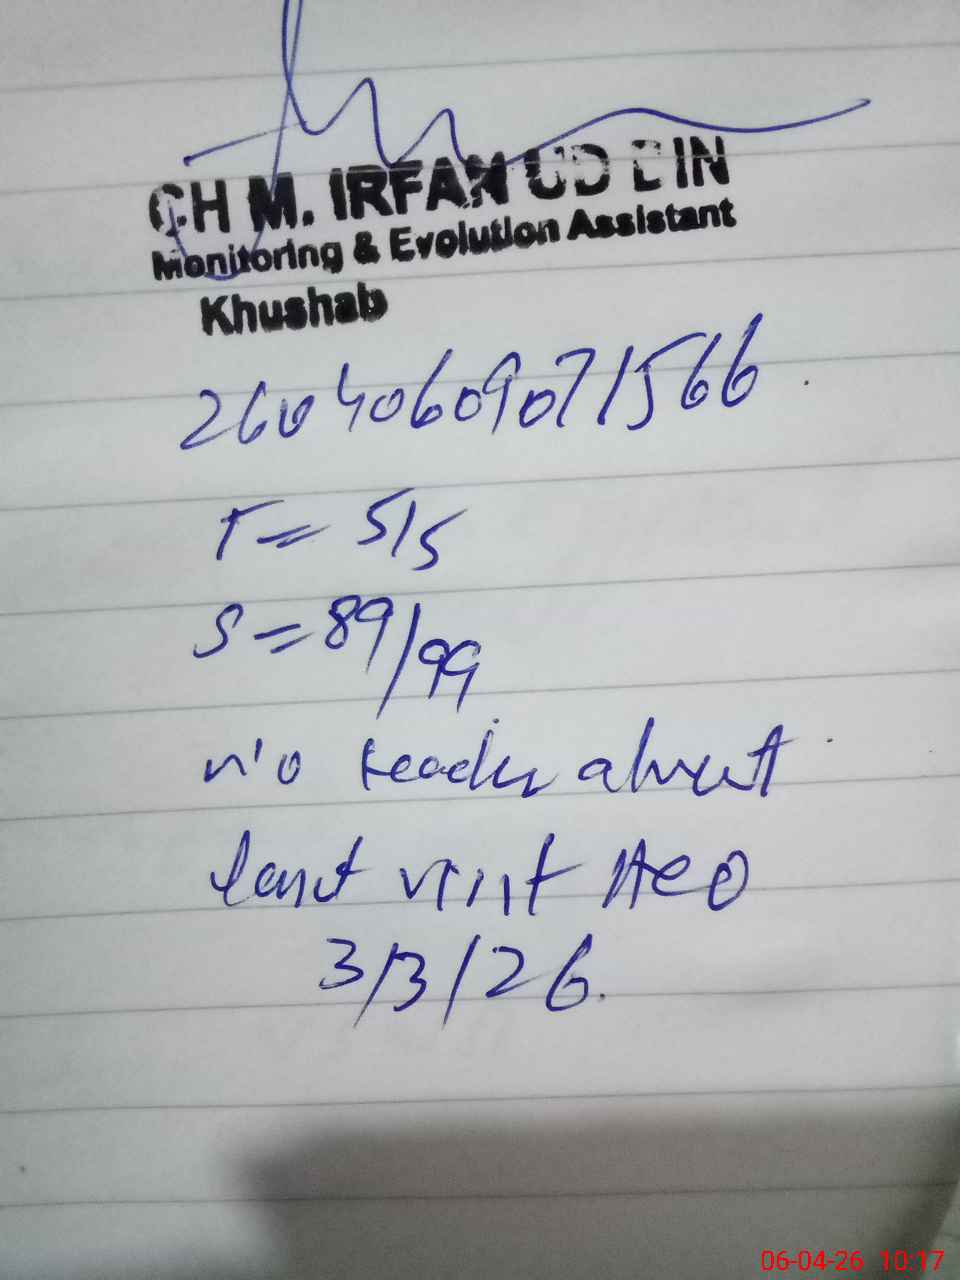 CH M. IRFAN UD DIN
Monitoring & Evolution Assistant
Khushab
26040609071566
T = 5/5
S = 89/99
no teacher absent
last visit AEO
3/3/26.
06-04-26 10:17